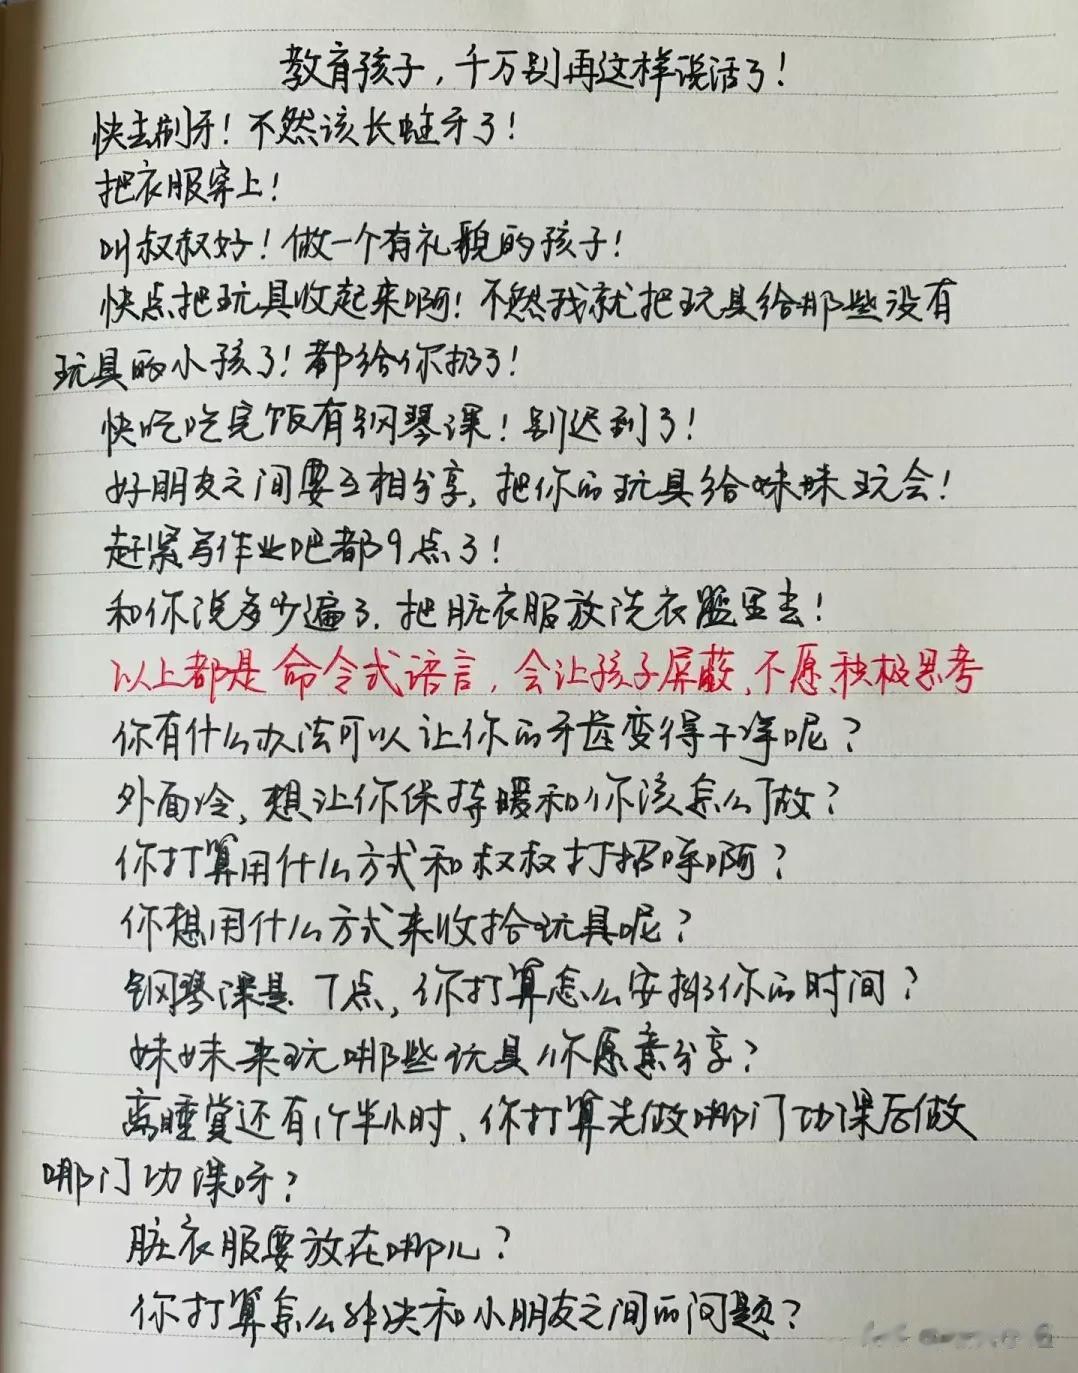 教育孩子，千万别再这样说话了！
快去刷牙！不然该长蛀牙了！
把衣服穿上！
叫叔叔好！做一个有礼貌的孩子！
快点把玩具收起来啊！不然我就把玩具给那些没有
玩具的小孩了！都给你扔了！
快吃吃完饭有钢琴课！别迟到了！
好朋友之间要互相分享，把你的玩具给妹妹玩会！
赶紧写作业吧都9点了！
和你说多少遍了，把脏衣服放洗衣篮里去！
以上都是命令式语言，会让孩子屏蔽，不愿积极思考
你有什么办法可以让你的牙齿变得干净呢？
外面冷，想让你保持暖和你该怎么做？
你打算用什么方式和叔叔打招呼啊？
你想用什么方式来收拾玩具呢？
钢琴课是7点，你打算怎么安排你的时间？
妹妹来玩哪些玩具你愿意分享？
离睡觉还有1个半小时，你打算先做哪门功课后做
哪门功课呀？
脏衣服要放在哪儿？
你打算怎么解决和小朋友之间的问题？